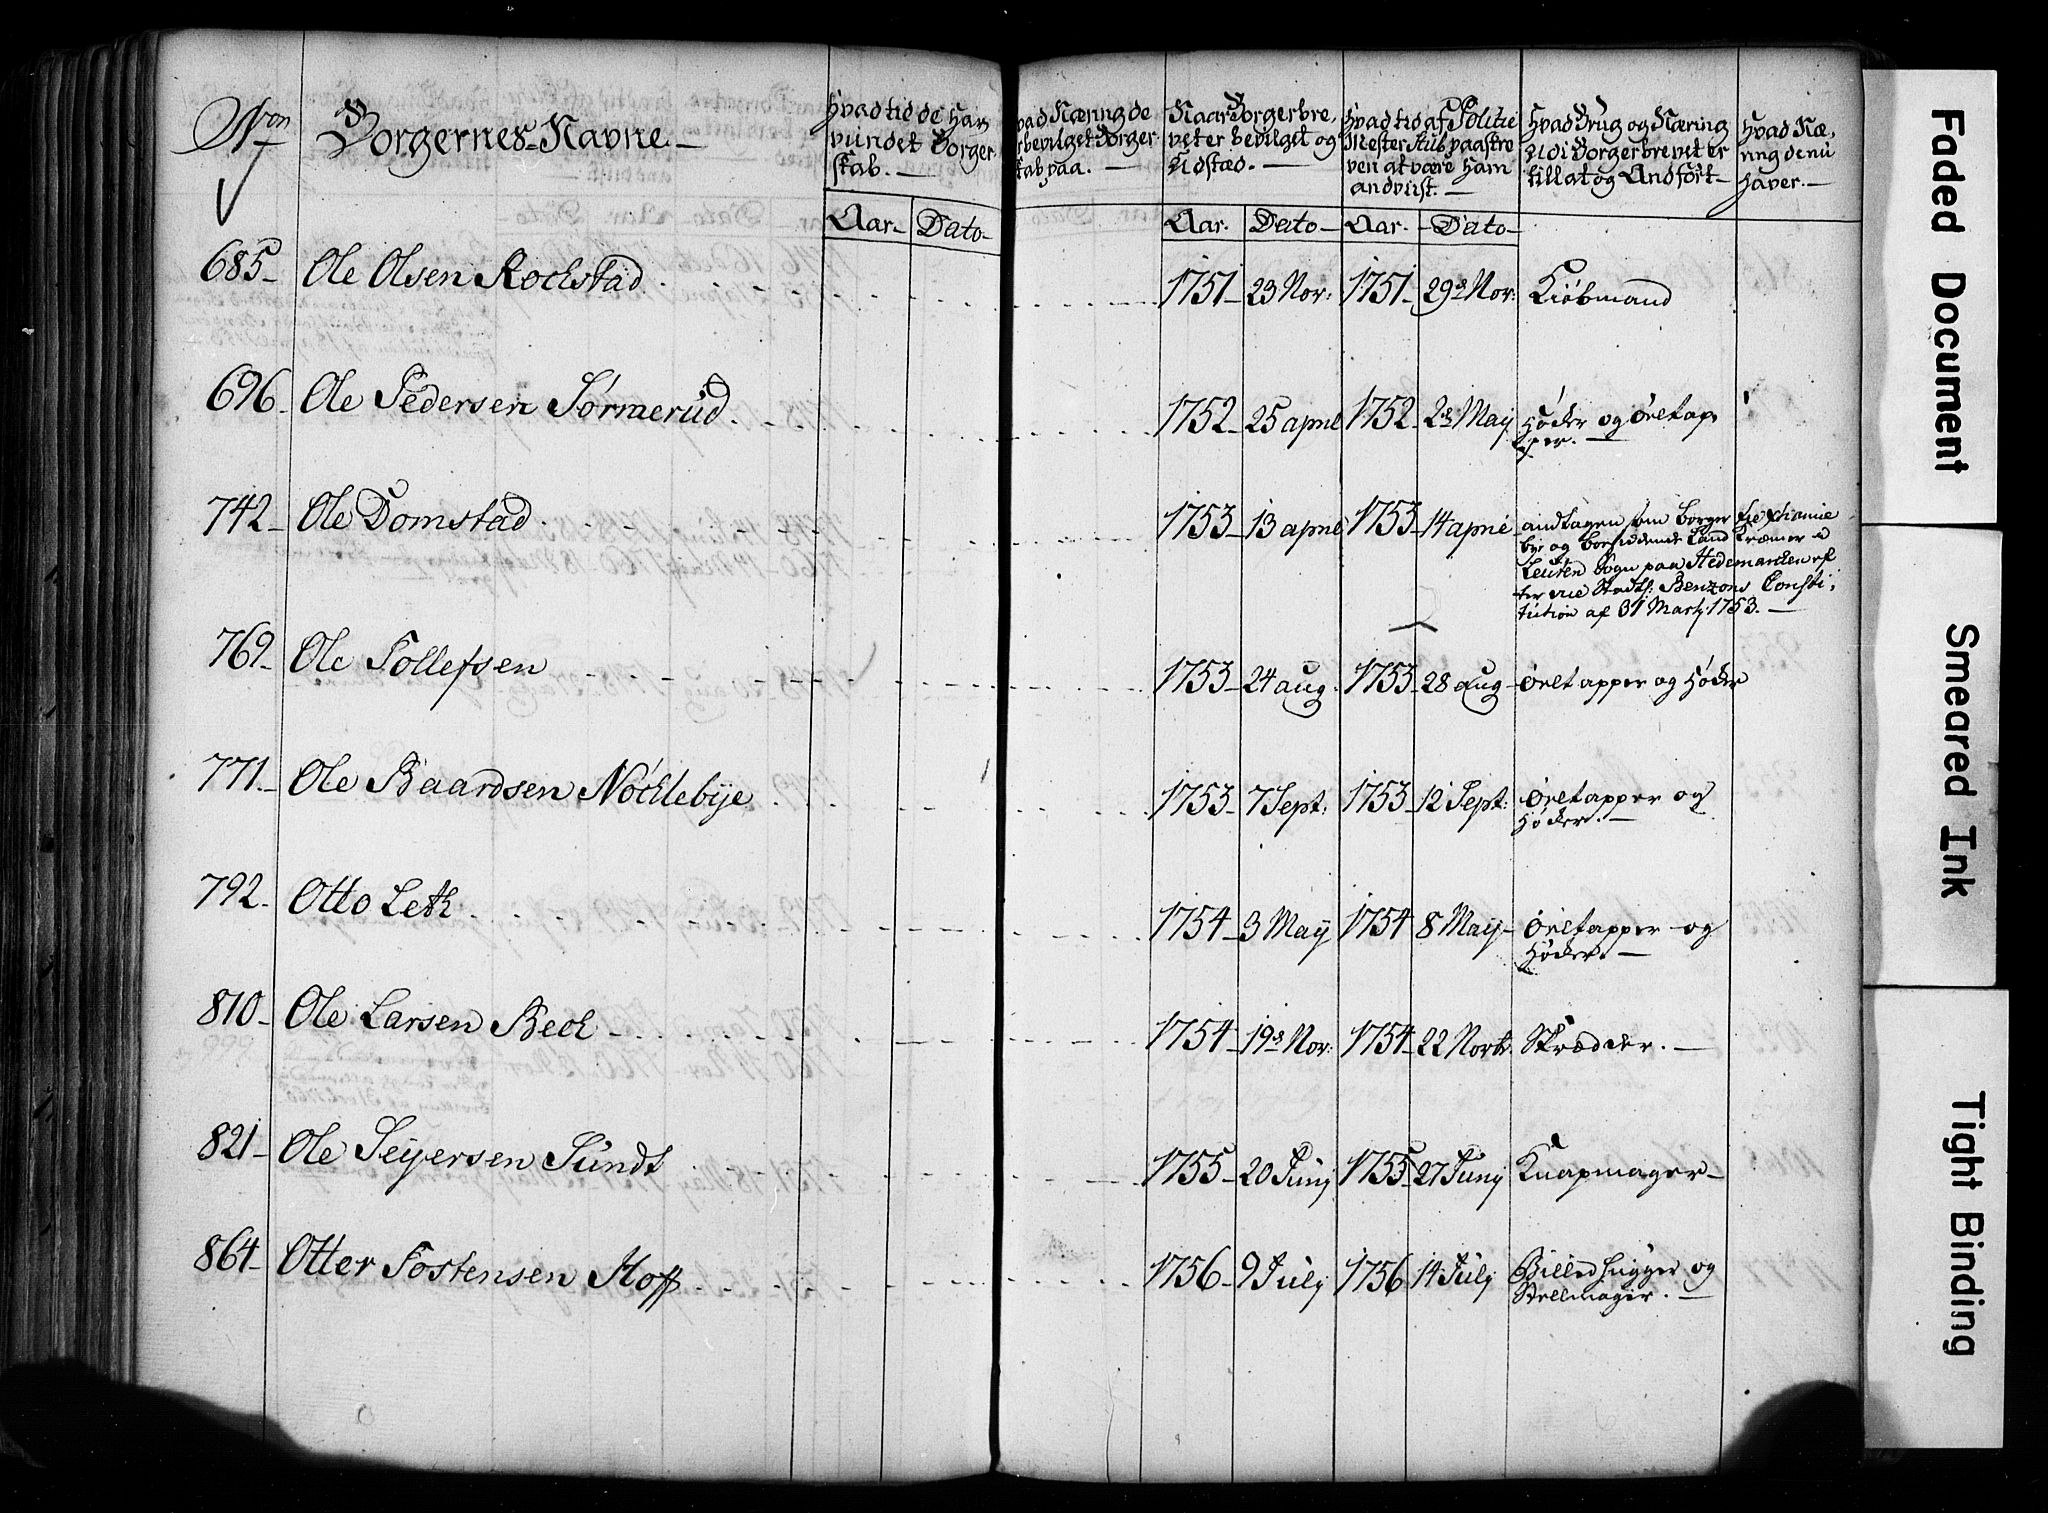 Nron
Borgernes Navne
Hvad tid de har
vundet Borger-
skab.
Aar Dato
vad Næring de
r bevilget Borger
kab paa.
Naar Borgerbre,
vet er bevilget og
Udstæd.
Aar. Dato
Hvad tid af Politie
Mester Skal paastre
ven at være ham
andviist.
Aar. Dato
Hvad Brug og Næring
Udi Borgerbrevet er
tillat og Andført
Hvad Næ,
ring de nu
haver.
685 Ole Olsen Rochstad 1751 23 Nor: 1751 29de Nor: Kiøbmand
696 Ole Pedersen Sørmerud 1752 25 april 1752 2de May Høcker og Øltap
per.
742 Ole Domstad 1753 13 april 1753 14 april andtagen som borger
bye og boesiddende Land Kræmer i
Leuten Sogn paa Hedemarcken ef
ter vice Stadth: Benzons Consti,
tution af 31 Marty 1753.
769 Ole Tollefsen 1753 24 aug. 1753 28 aug Øltapper og Høcker
771 Ole Baardsen Nöchlebye 1753 7 Sept: 1753 12 Sept: Øltapper og
Høcker.
792 Otto Leth 1754 3 May 1754 8 May Øltapper og
Høcker.
810 Ole Larsen Bech 1754 19de Nor: 1754 22 Norbr Skrædder.
821 Ole Seyersen Sundt 1755 20 Juny 1755 27 Juny Knapmager
864 Otter Tostensen Hoff 1756 9 July 1756 14 July Billedhugger og
Stellmager.
Faded Document
Smeared Ink
Tight Binding